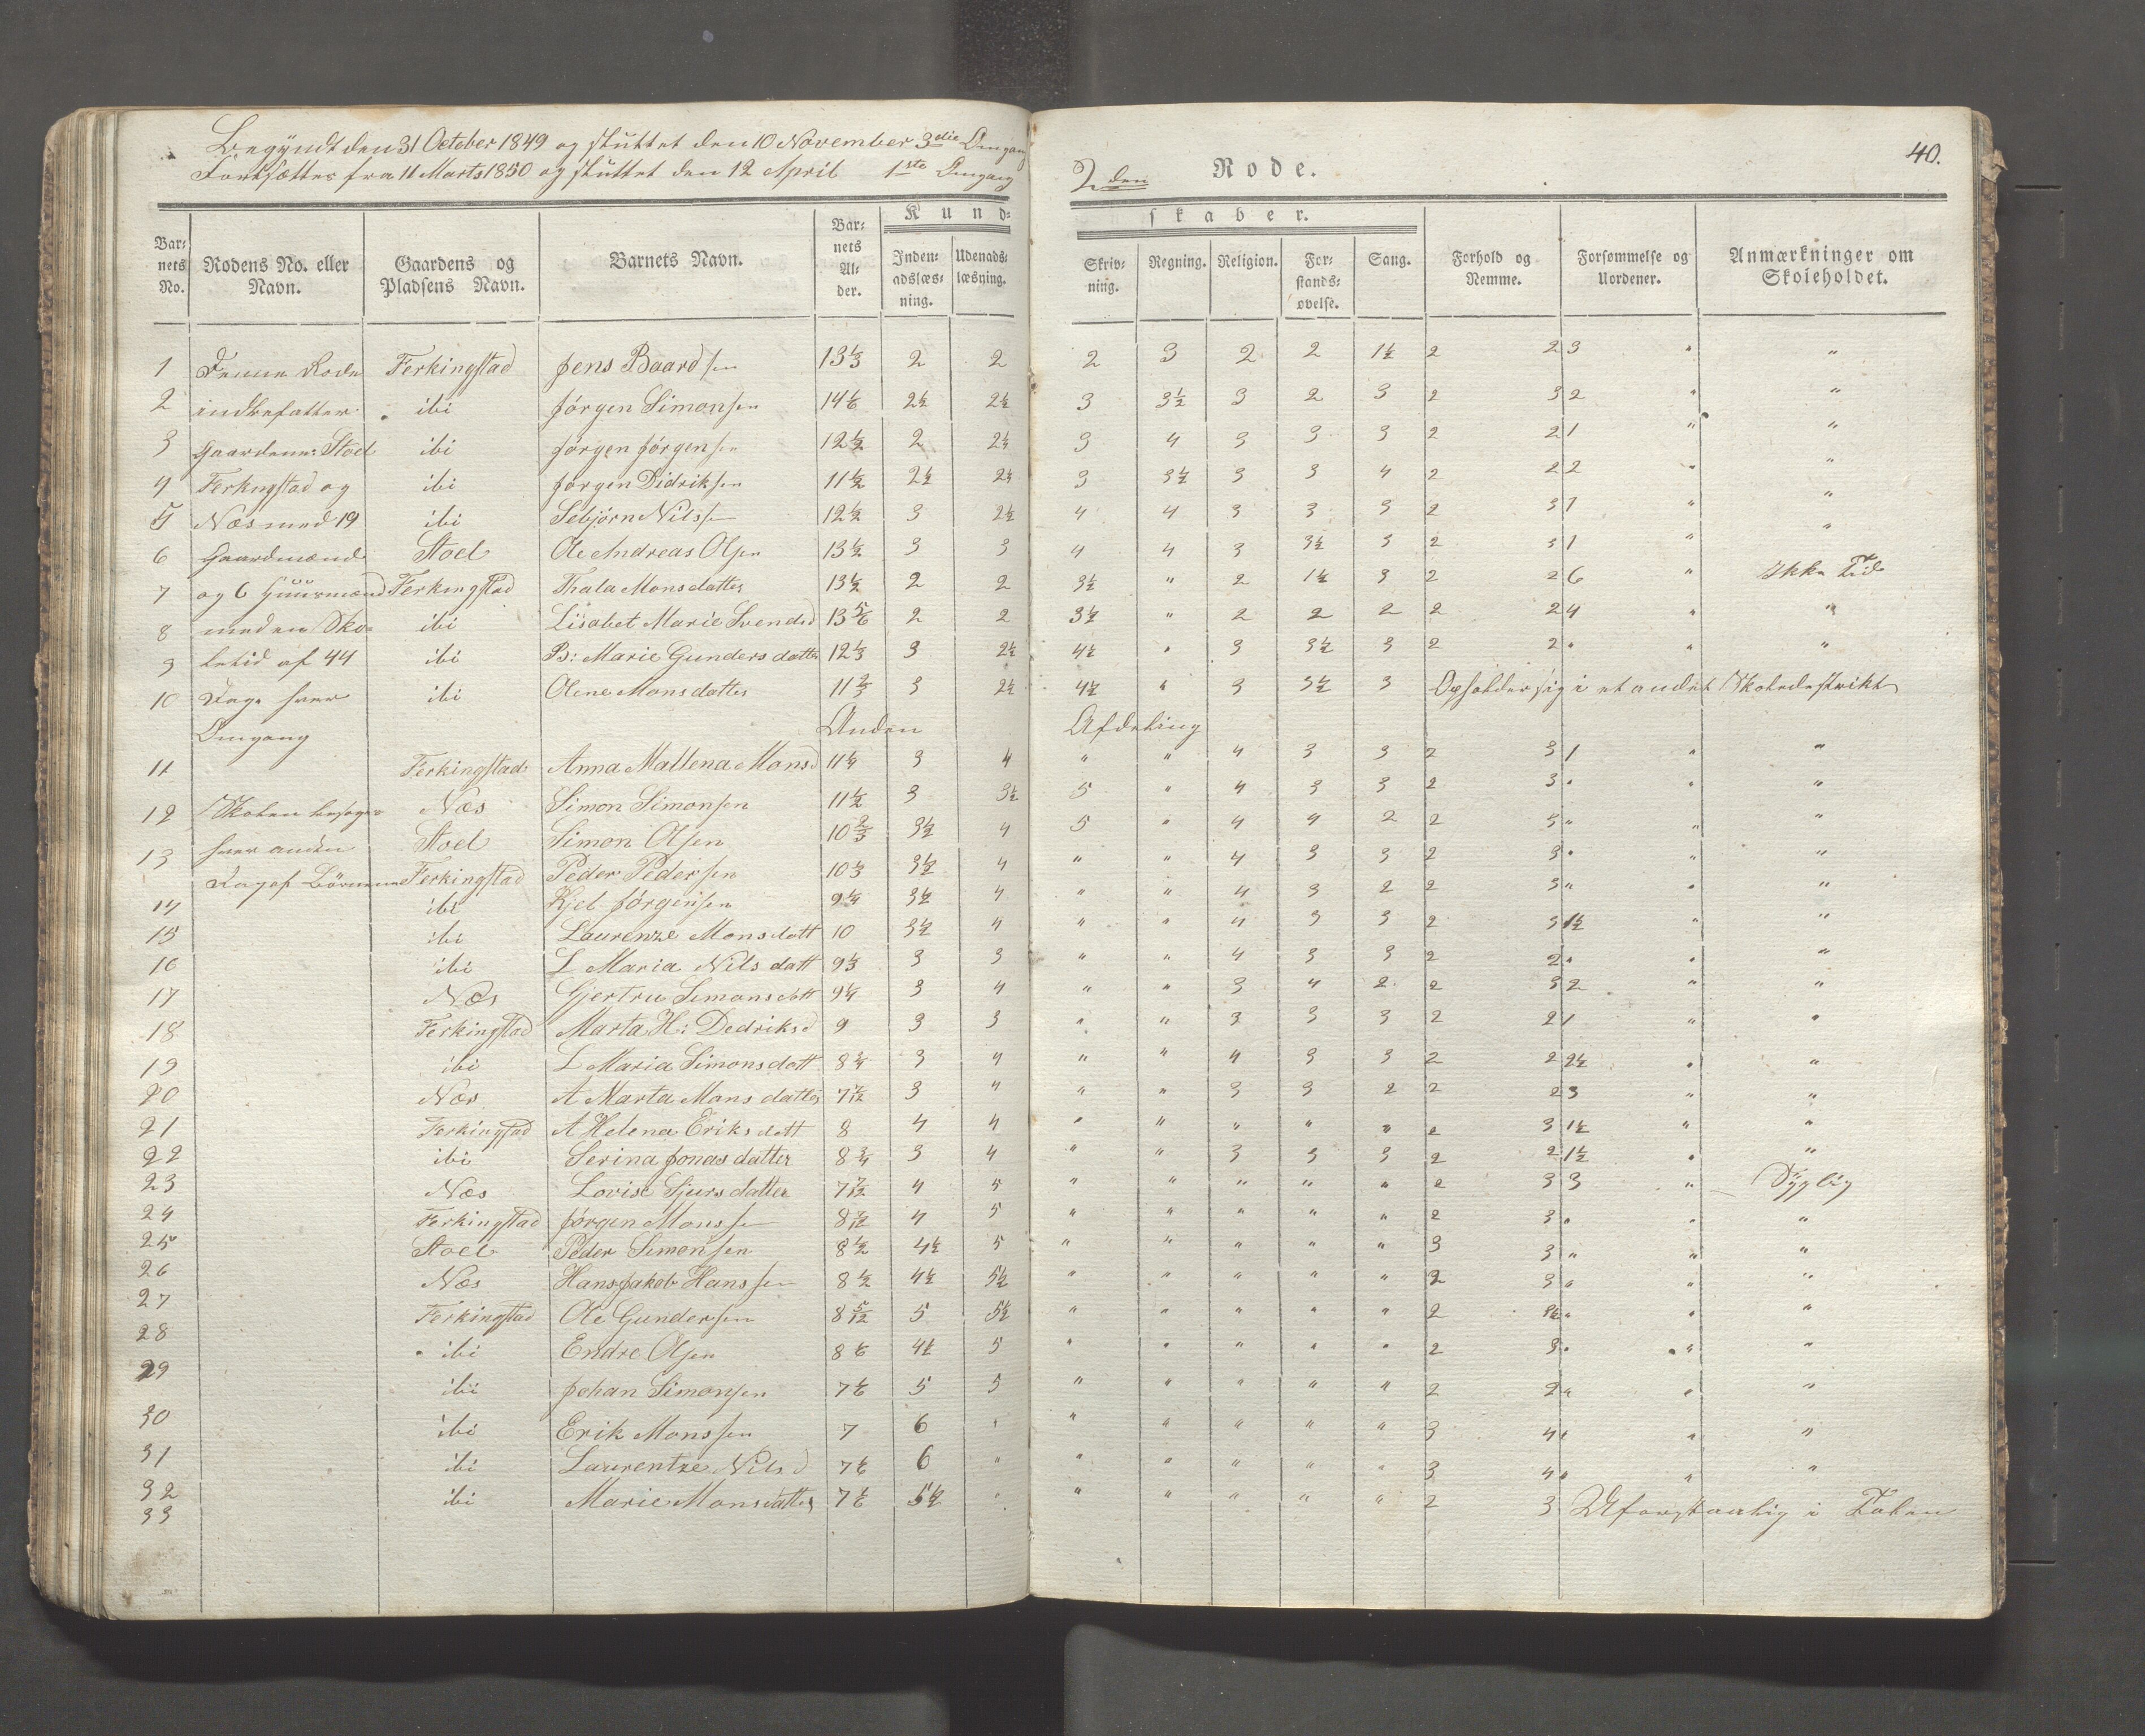 Begyndt den 31 October 1849 og sluttet den 10 November 3die Omgang
Fortsættes fra 11 Marts 1850 og sluttet den 12 April 1ste Omgang
2den Rode.
40.
Kund-
skaber.
Bar-nets No. | Rodens No. eller Navn. | Gaardens og Pladsens Navn. | Barnets Navn. | Bar-nets Al-der. | Inden-adslæs-ning. | Udenads-læsning. | Skriv-ning. | Regning. | Religion. | For-stands-øvelse. | Sang. | Forhold og Nemme. | Forsømmelse og Uordener. | Anmærkninger om Skoleholdet.
1 Denne Rode Ferkingstad Jens Baardsen 13 1/3 2 2 2 3 2 2 1 1/2 2 2 3 " "
2 indbefatter ibi Jørgen Simonsen 14 1/6 2 1/2 2 1/2 3 3 1/2 3 2 3 2 3 2 " "
3 Gaardene: Stoel ibi Jørgen Jørgensen 12 1/2 2 2 1/2 3 4 3 3 3 2 2 1 " "
4 Ferkingstad og ibi Jørgen Didriksen 11 1/2 2 1/2 2 1/2 3 3 1/2 3 3 4 2 2 2 " "
5 Næs med 19 ibi Sebjørn Nilssen 12 1/2 3 2 1/2 4 4 3 3 3 2 3 1 " "
6 Gaardmænd Stoel Ole Andreas Olsen 13 1/2 3 3 4 4 3 3 1/2 3 2 3 1 " "
7 og 6 Huusmænd Ferkingstad Thala Monsdatter 13 1/2 2 2 3 1/2 " 2 1 1/2 3 2 2 6 " Ikke Tid
8 med en Sko- ibi Lisabet Marie Svendsd 13 5/6 2 2 3 1/2 " 2 2 2 2 2 4 " "
9 letid af 44 ibi B: Marie Gundersdatter 12 1/3 3 2 1/2 4 1/2 " 3 3 1/2 3 2 2 " " "
10 Dage hver ibi Olene Monsdatter 11 2/3 3 2 1/2 4 1/2 " 3 3 1/2 3 Opholder sig i et andet Skoledestrikt
Omgang Anden Afdeling
11 Ferkingstad Anna Mallena Monsd 11 1/4 3 4 " " 4 3 3 2 3 1 " "
12 Skolen besøges Næs Simon Simonsen 11 1/2 3 3 1/2 5 " 4 3 3 2 3 " "
13 hver anden Stoel Simon Olsen 10 2/3 3 1/2 4 5 " 4 4 2 2 3 " " "
Dag af Börnene Ferkingstad Peder Pedersen 10 1/3 3 1/2 4 " " 4 3 3 2 3 " " "
14 ibi Kjel Jørgensen 9 1/4 3 1/2 4 " " 4 3 2 2 3 " " "
15 ibi Laurenze Monsdatt 10 3 1/2 4 " " 4 3 3 2 3 1 1/2 " "
16 ibi L Maria Nilsdatt 9 1/3 3 3 " " 4 3 3 2 2 " " "
17 Næs Gjertru Simonsdatt 9 1/4 3 4 " " 3 4 2 2 3 2 " "
18 Ferkingstad Marta H: Dedriksd 9 3 3 " " 3 3 3 2 2 1 " "
19 ibi L Maria Simonsdatt 8 3/4 3 4 " " 4 3 3 2 2 2 1/2 " "
20 Næs A Marta Monsdatter 7 7/12 3 4 " " 3 3 2 2 2 3 " "
21 Ferkingstad A Helena Eriksdatt 8 4 4 " " " " " 2 3 1 1/2 " "
22 ibi Serina Jonasdatter 8 3/4 3 4 " " 3 3 3 2 2 1 1/2 " "
23 Næs Lovise Sjursdatter 7 7/12 4 5 " " " " " 2 3 3 " Sygelig
24 Ferkingstad Jørgen Monssen 8 7/12 4 5 " " " " " 2 3 " " "
25 Stoel Peder Simonsen 8 1/2 4 1/2 5 " " " " " 3 3 " " "
26 Næs Hans Jakob Hanssen 8 1/2 4 1/2 5 1/2 " " " " " 2 3 " " "
27 Ferkingstad Ole Gundersen 8 5/12 5 5 1/2 " " " " " 2 3 1/2 " " "
28 ibi Endre Olsen 8 1/6 4 1/2 5 " " " " " 2 3 " " "
29 ibi Johan Simonsen 7 1/6 5 5 " " " " " 2 2 " " "
30 ibi Erik Monssen 7 6 " " " " " " 3 4 " " "
31 ibi Laurentze Nilsd 7 1/6 6 " " " " " " 3 4 " " "
32 ibi Marie Monsdatter 7 1/6 5 1/2 " " " " " " 2 3 Uforstaaelig i Talen
33